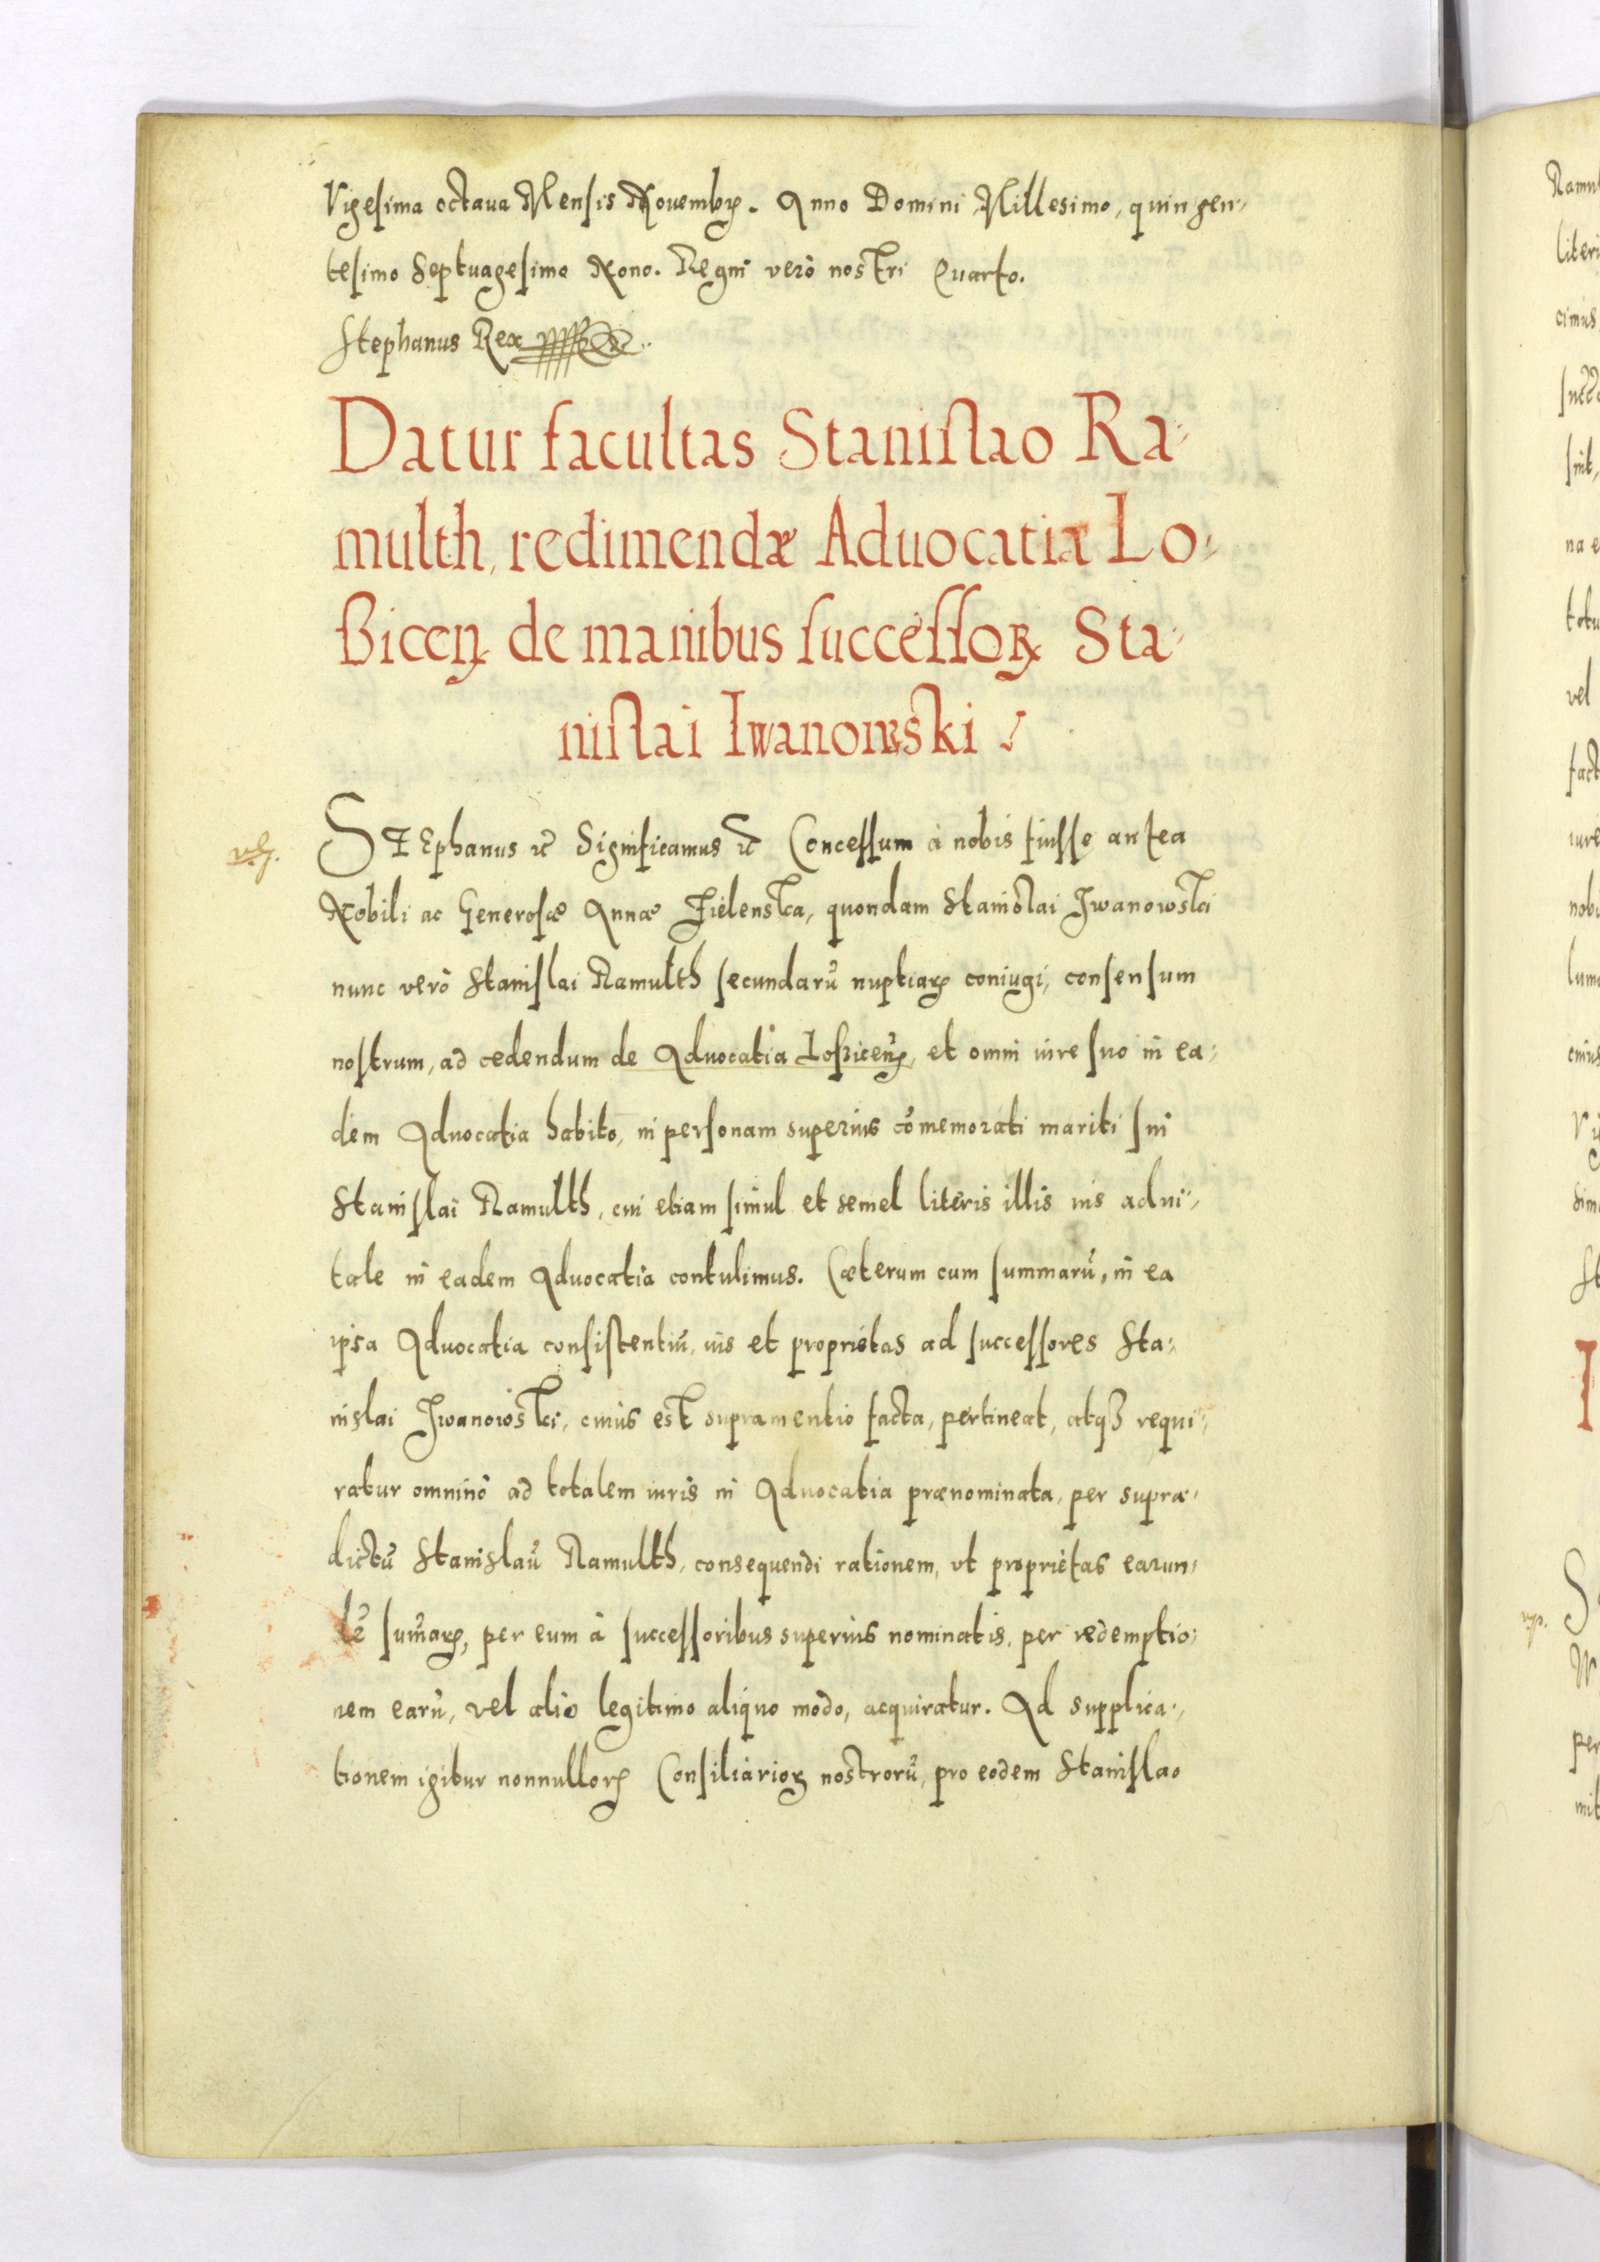 Vigesima octaua Mensis Nouembꝝ. Anno Domini Millesimo, quingen-
tesimo Septuagesimo Nono. Regni verò nostri Quarto.
Stephanus Rex
Datur facultas Stanislao Ra-
multh, redimendæ Aduocatiæ Lo-
ßiceñ. de manibus successoꝝ Sta-
nislai Iwanowski
STEphanus ꝛc Significamus ꝛc Concessum à nobis fuisse antea
Nobili ac Generosæ Annæ Zielenska, quondam Stanislai Iwanowski
nunc verò Stanislai Ramulth secundarũ nuptiaꝝ coniugi, consensum
nostrum, ad cedendum de Aduocatia Loßiceñ, et omni iure suo in ea-
dem Aduocatia habito, in personam superius cõmemorati mariti sui
Stanislai Ramulth, cui etiam simul et semel literis illis ius adui-
tale in eadem Aduocatia contulimus. Cæterum cum summarũ, in ea
ipsa Aduocatia consistentiũ, ius et proprietas ad successores Sta-
nislai Iwanowski, cuius est supra mentio facta, pertineat, atqꝫ requi-
ratur omninò ad totalem iuris in Aduocatia prænominata, per supra-
dictũ Stanislaũ Ramulth, consequendi rationem, vt proprietas earun-
dẽ sum̃aꝝ, per eum à successoribus superius nominatis, per redemptio-
nem earũ, vel alio legitimo aliquo modo, acquiratur. Ad supplica-
tionem igitur nonnulloꝝ Consiliarioꝝ nostrorũ, pro eodem Stanislao
Ramu
literi
cimus
na e
totu
vel
fact
iure
nobi
cuius
sim
St
I
per
mit